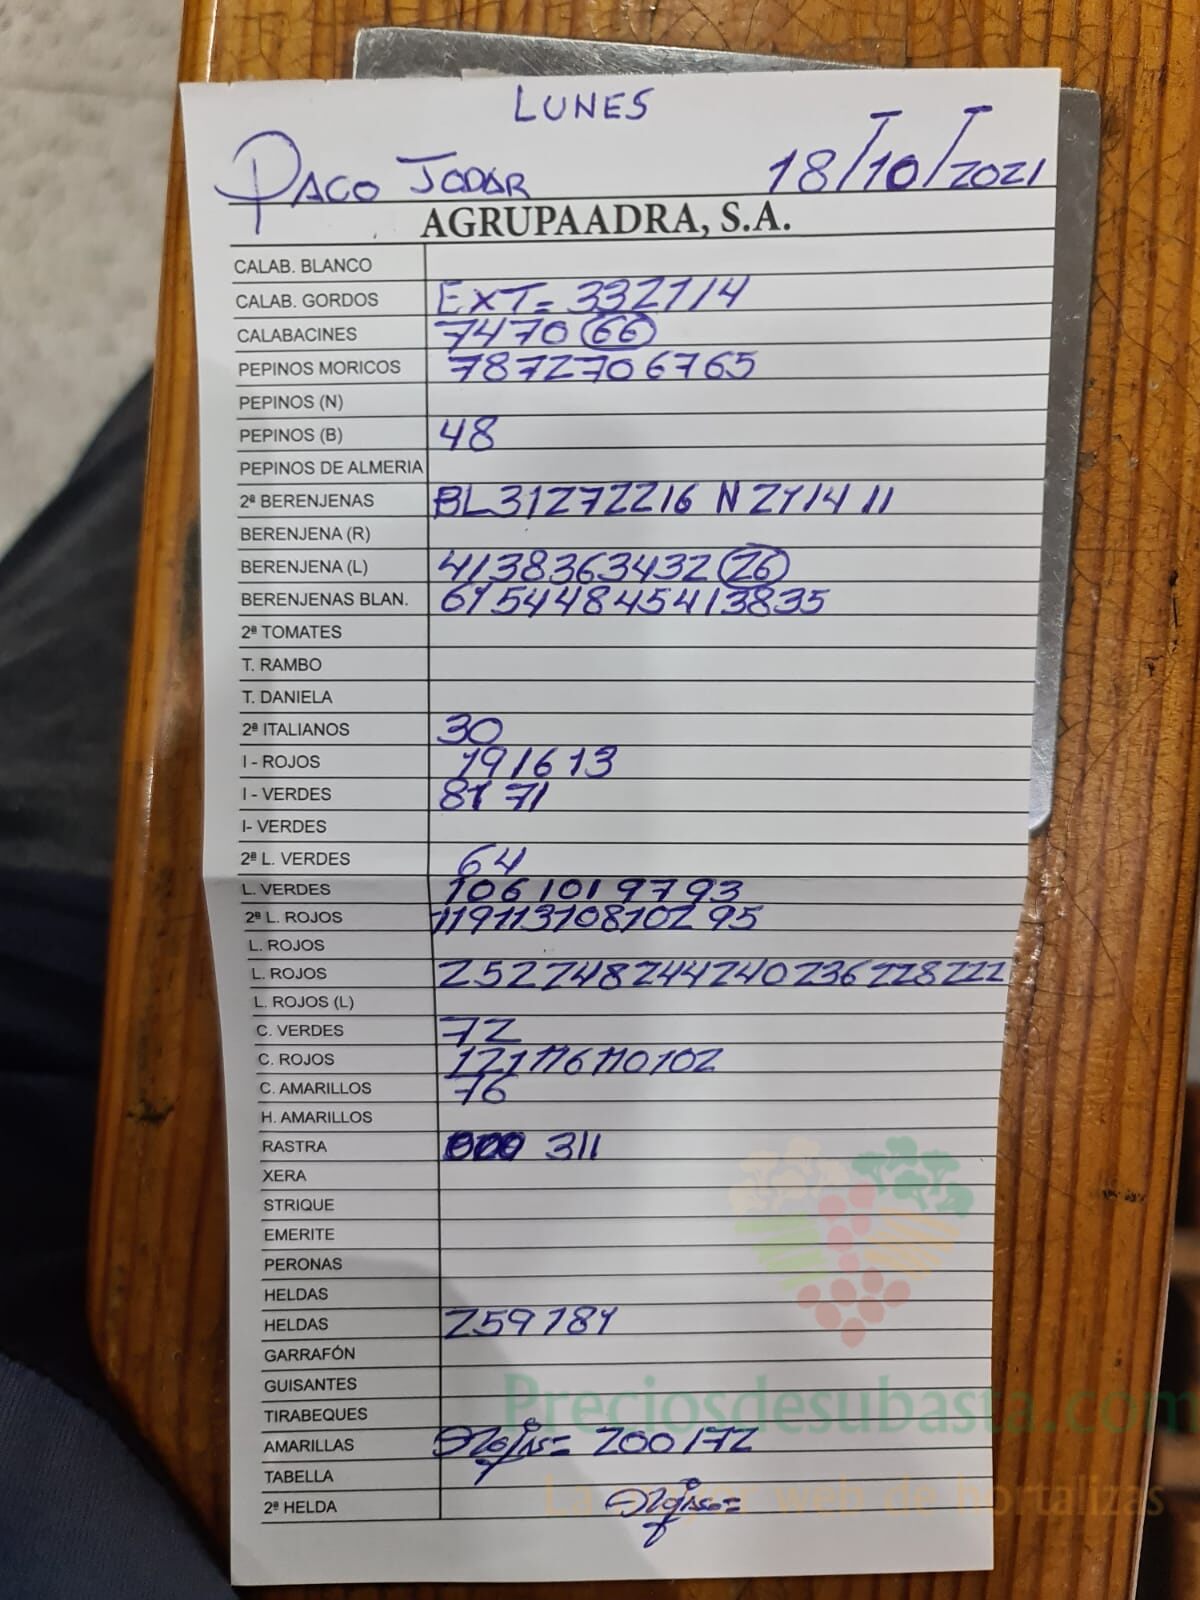 LUNES
PACO JODAR 18/10/2021
AGRUPAADRA, S.A.
CALAB. BLANCO
CALAB. GORDOS EXT= 332714
CALABACINES 7470 66
PEPINOS MORICOS 7872706765
PEPINOS (N)
PEPINOS (B) 48
PEPINOS DE ALMERIA
2ª BERENJENAS BL31272216 N 211411
BERENJENA (R)
BERENJENA (L) 4138363432 26
BERENJENAS BLAN. 61544845413835
2ª TOMATES
T. RAMBO
T. DANIELA
2ª ITALIANOS 30
I - ROJOS 191613
I - VERDES 81 71
I- VERDES
2ª L. VERDES 64
L. VERDES 106 101 97 93
2ª L. ROJOS 119113108102 95
L. ROJOS
L. ROJOS 252248244240236228222
L. ROJOS (L)
C. VERDES 72
C. ROJOS 121116110102
C. AMARILLOS 76
H. AMARILLOS
RASTRA 311
XERA
STRIQUE
EMERITE
PERONAS
HELDAS
HELDAS 259 181
GARRAFÓN
GUISANTES
TIRABEQUES
AMARILLAS 200172
TABELLA
2ª HELDA
Preciosdesubasta.com
La mejor web de hortalizas